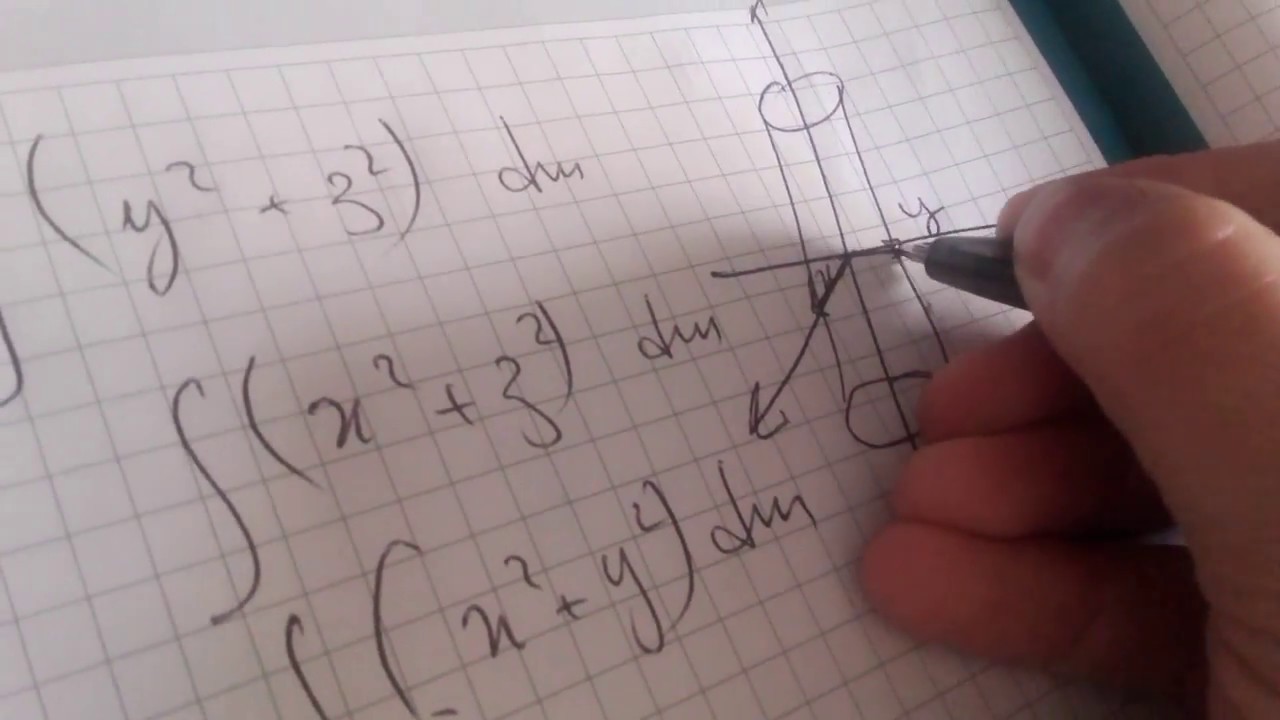 (y² + z²) dm
y
∫(x² + z²) dm
∫(x² + y²) dm